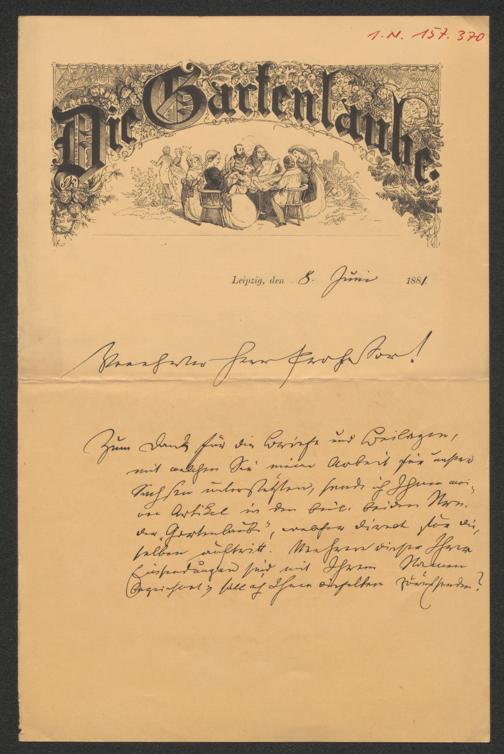 I.N. 157.370
Die Gartenlaube.
Leipzig, den 8. Juni 1881.
Verehrter Herr Professor!
Zum Dank für die Briefe und Beilagen,
mit welchen Sie meine Arbeit für unsere
Sachsen unterstützten, sende ich Ihnen mei-
nen Artikel in den beil. beiden Nrn.
der "Gartenlaube", welcher direct für die-
selben auftritt. Mehrere dieser Ihrer
Einsendungen sind mit Ihrem Namen
bezeichnet; soll ich Ihnen dieselben zurücksenden?